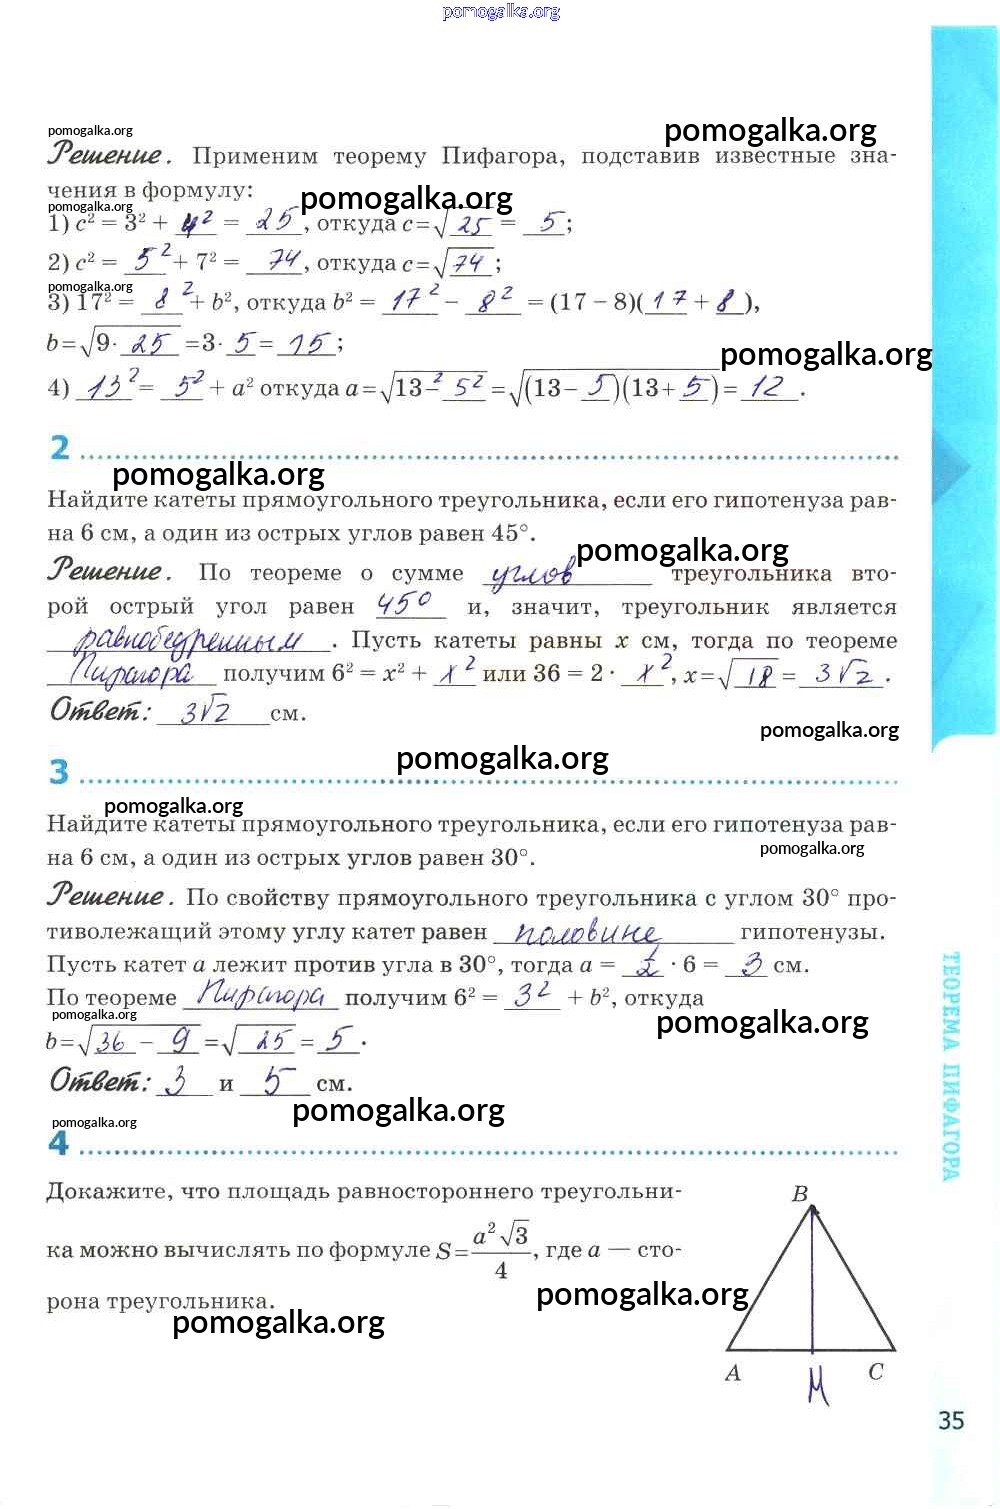 pomogalka.org
pomogalka.org
pomogalka.org
Решение. Применим теорему Пифагора, подставив известные зна-
чения в формулу:
pomogalka.org
pomogalka.org
1) c² = 3² + 4² = 25, откуда c=√25 = 5;
2) c² = 5² + 7² = 74, откуда c=√74;
pomogalka.org
3) 17² = 8² + b², откуда b² = 17² − 8² = (17 − 8)(17 + 8),
b=√9·25 =3·5 = 15;
pomogalka.org
4) 13² = 5² + a² откуда a=√13−² 5² =√(13−5)(13+5)= 12.
2
pomogalka.org
Найдите катеты прямоугольного треугольника, если его гипотенуза рав-
на 6 см, а один из острых углов равен 45°.
pomogalka.org
Решение. По теореме о сумме углов треугольника вто-
рой острый угол равен 45° и, значит, треугольник является
равнобедренным. Пусть катеты равны x см, тогда по теореме
Пифагора получим 6² = x² + x² или 36 = 2 · x², x=√18 = 3√2.
Ответ: 3√2 см.
pomogalka.org
3
pomogalka.org
pomogalka.org
Найдите катеты прямоугольного треугольника, если его гипотенуза рав-
на 6 см, а один из острых углов равен 30°.
pomogalka.org
Решение. По свойству прямоугольного треугольника с углом 30° про-
тиволежащий этому углу катет равен половине гипотенузы.
Пусть катет a лежит против угла в 30°, тогда a = 1/2 · 6 = 3 см.
По теореме Пифагора получим 6² = 3² + b², откуда
pomogalka.org
pomogalka.org
b=√36 − 9 =√25 = 5.
Ответ: 3 и 5 см.
pomogalka.org
pomogalka.org
4
Докажите, что площадь равностороннего треугольни-
ка можно вычислять по формуле S = a²√3/4, где a — сто-
рона треугольника.
pomogalka.org
pomogalka.org
B
A
M
C
ТЕОРЕМА ПИФАГОРА
35